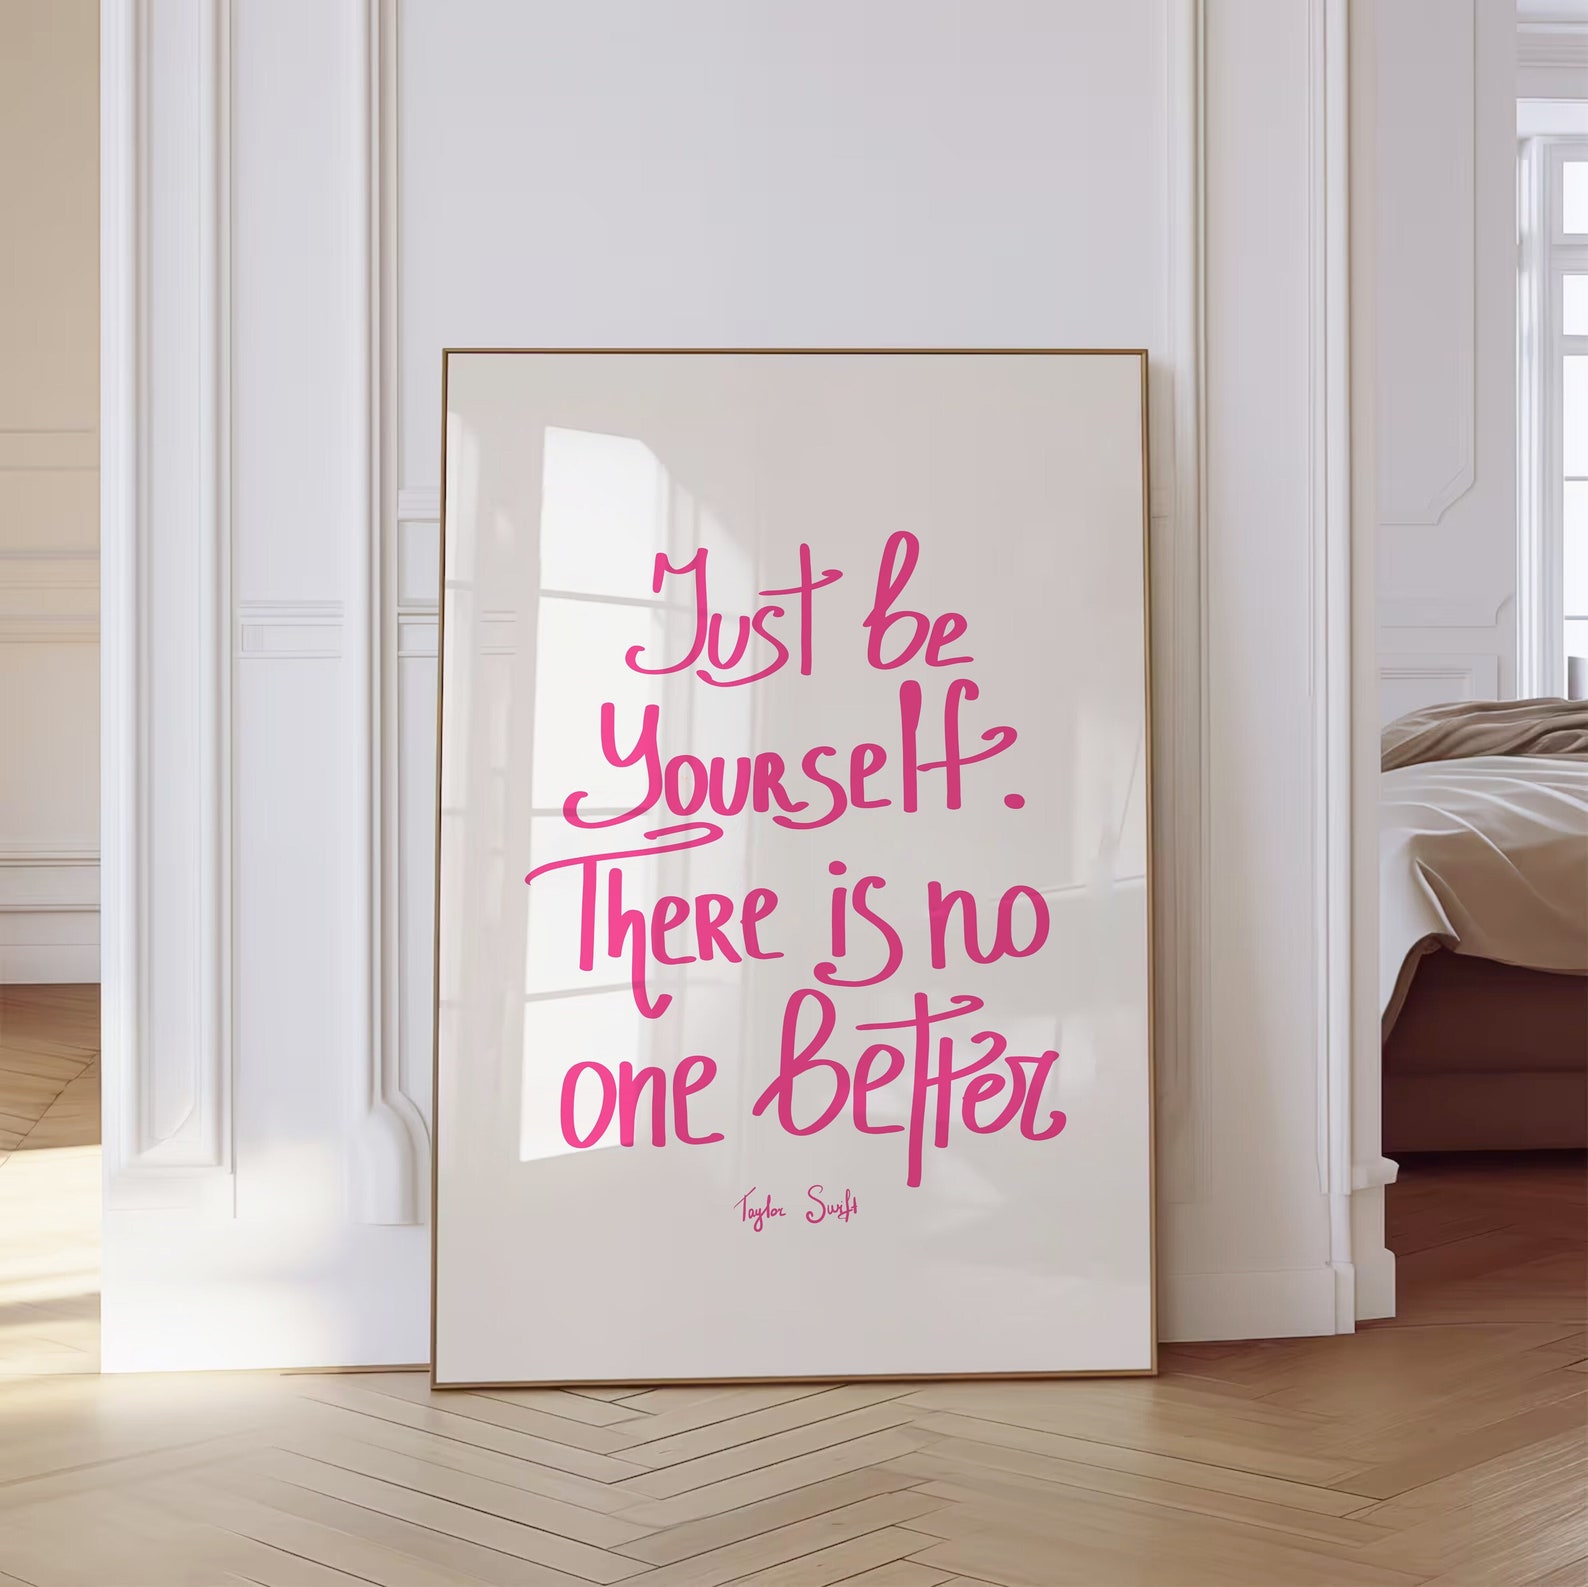 Just be
yourself.
There is no
one better
Taylor Swift